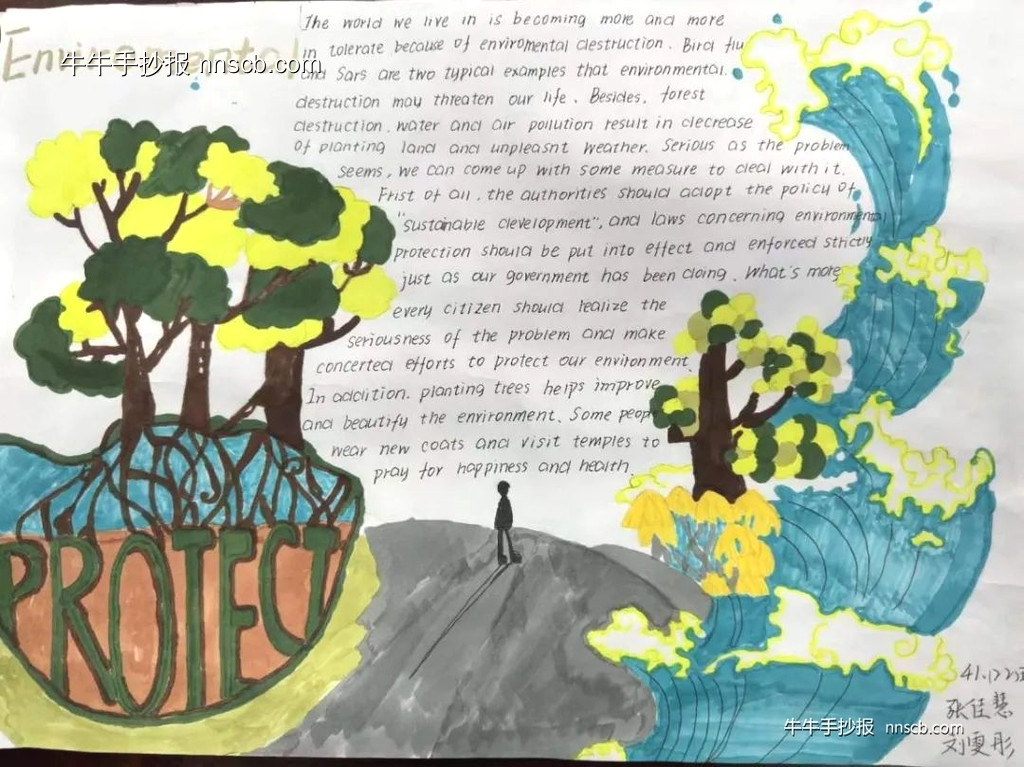 Enviromental
牛牛手抄报 nnscb.com
The world we live in is becoming more and more
in tolerate because of enviromental destruction. Bird flu
and Sars are two typical examples that environmental
destruction may threaten our life. Besides, forest
destruction, water and air pollution result in decrease
of planting land and unpleasnt weather. Serious as the problem
seems, we can come up with some measure to deal with it.
Frist of all, the authorities should adopt the policy of
"Sustainable development", and laws concerning environmental
protection should be put into effect and enforced strictly
just as our government has been doing. What's more,
every citizen should realize the
seriousness of the problem and make
concerted efforts to protect our environment.
In addition, planting trees helps improve
and beautify the environment. Some people
wear new coats and visit temples to
pray for happiness and health.
PROTECT
张佳慧
牛牛手抄报 nnscb.com